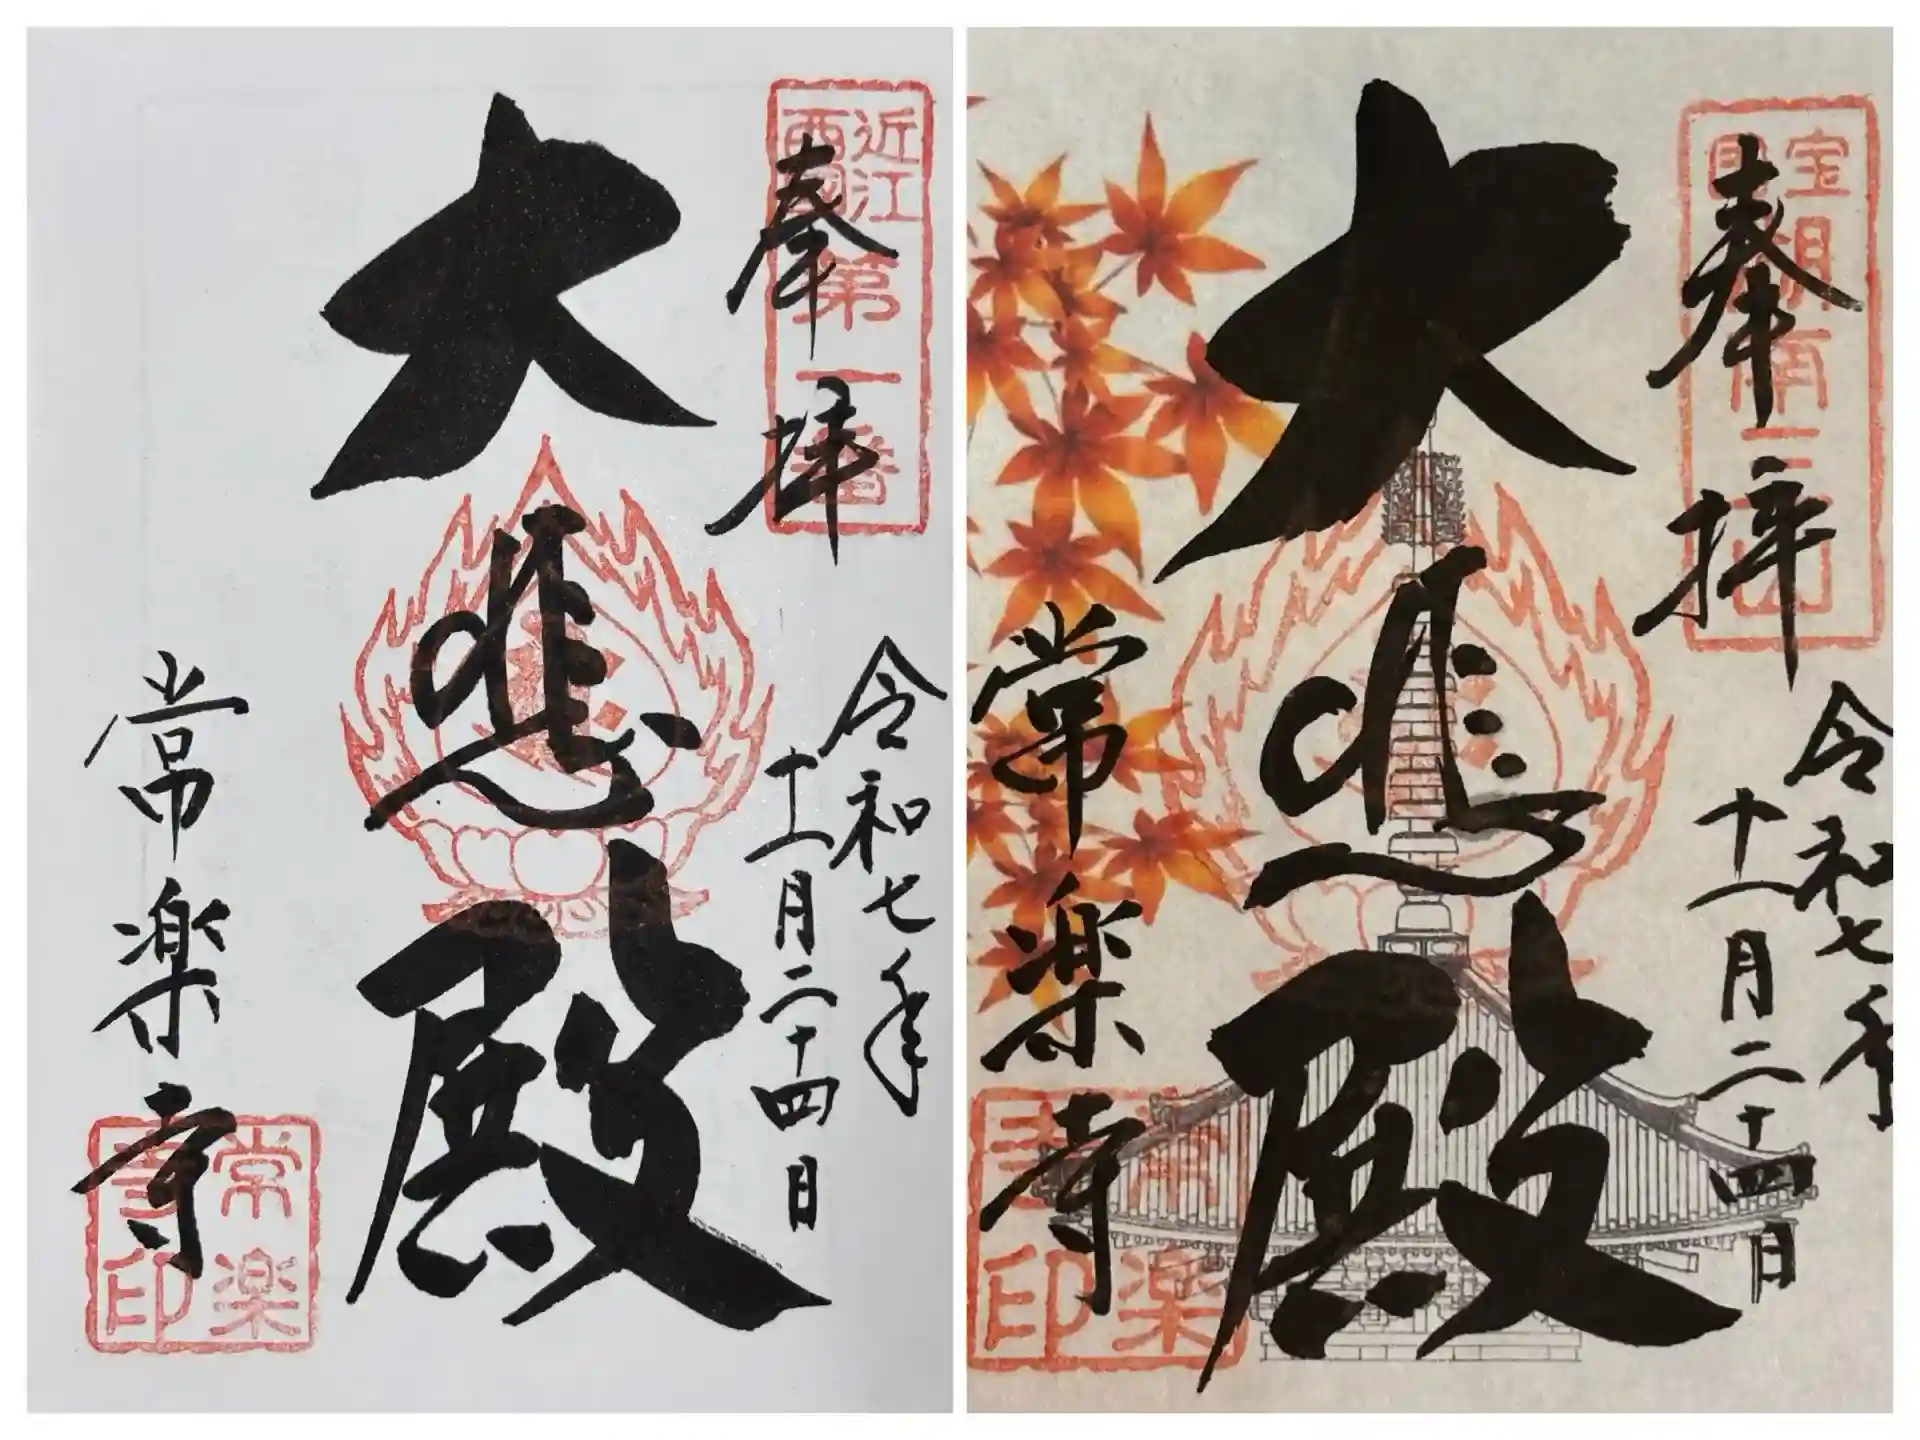 奉拝
近江西国第一番
令和七年
十一月二十四日
大悲殿
常楽寺
常楽寺印
奉拝
国宝湖南三山
令和七年
十一月二十四日
大悲殿
常楽寺
常楽寺印